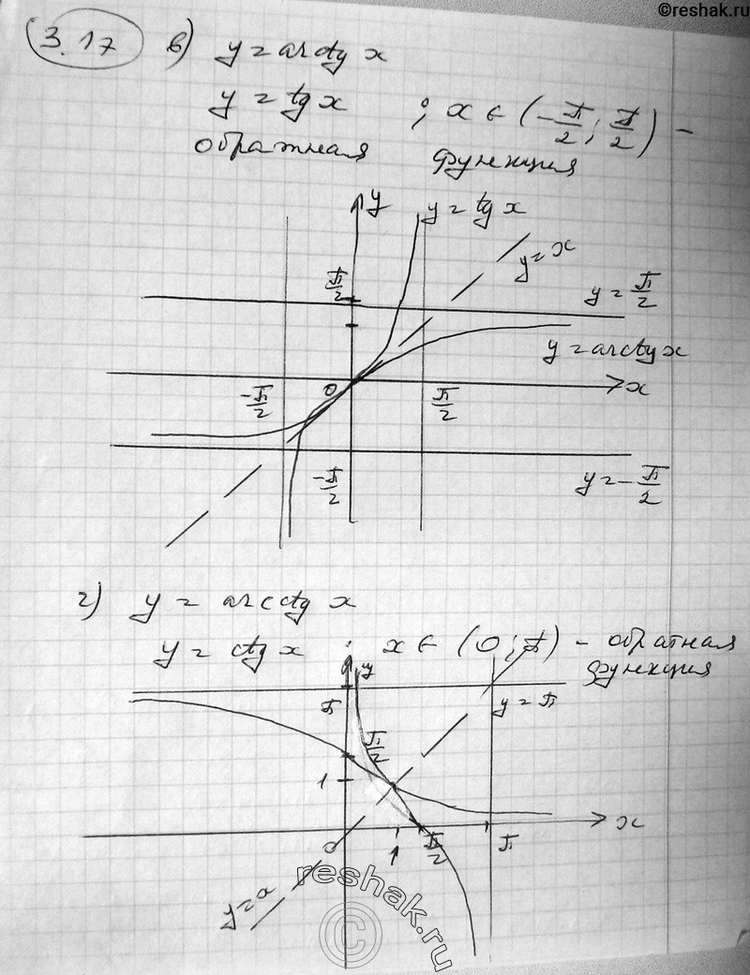 ©reshak.ru
3.17 в) y = arctg x
y = tg x ; x ∈ (-π/2; π/2) -
обратная функция
y
y = tg x
y = x
π/2
y = π/2
y = arctg x
-π/2
0
π/2
x
-π/2
y = -π/2
г) y = arcctg x
y = ctg x ; x ∈ (0; π) - обратная
функция
y
π
y = π
π/2
1
0
1
π/2
π
x
y = x
reshak.ru
©